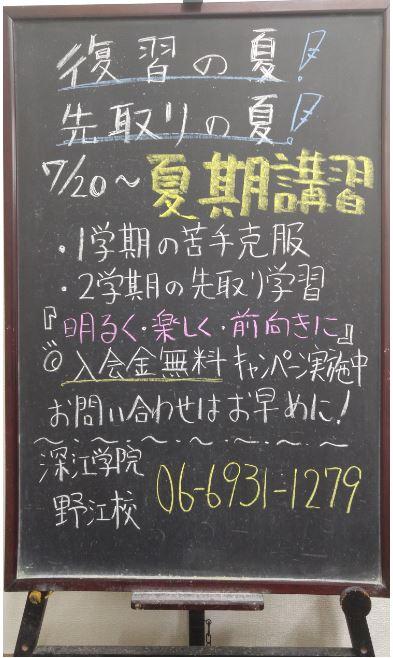 復習の夏!
先取りの夏!
7/20～夏期講習
・1学期の苦手克服
・2学期の先取り学習
『明るく・楽しく・前向きに』
◎入会金無料キャンペーン実施中
お問い合わせはお早めに!
深江学院
野江校
06-6931-1279